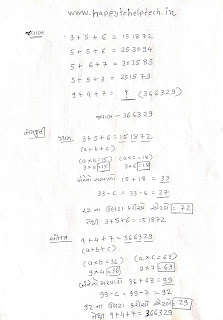 www.happytohelptech.in
સવાલ
3+5+6 = 151872
5+3+6 = 253094
5+6+7 = 303585
5+5+3 = 251573
9+4+7 = ? (366329)
જવાબ - 366329
3+5+6 = 151872
(a+b+c)
(a×b=15) (a×c=18)
3×5=15 3×6=18
બંનેનો સરવાળો 15+18 = 33
33-6 = 33-6 = 27
27 ના ઉલટા કરીએ એટલે = 72
તેથી 3+5+6=151872
9+4+7 = 366329
(a+b+c)
(a×b=36) (a×c=63)
9×4=36 9×7=63
બંનેનો સરવાળો 36+63 = 99
99-c = 99-7 = 92
92 ના ઉલટા કરીએ એટલે = 29
તેથી 9+4+7 = 366329